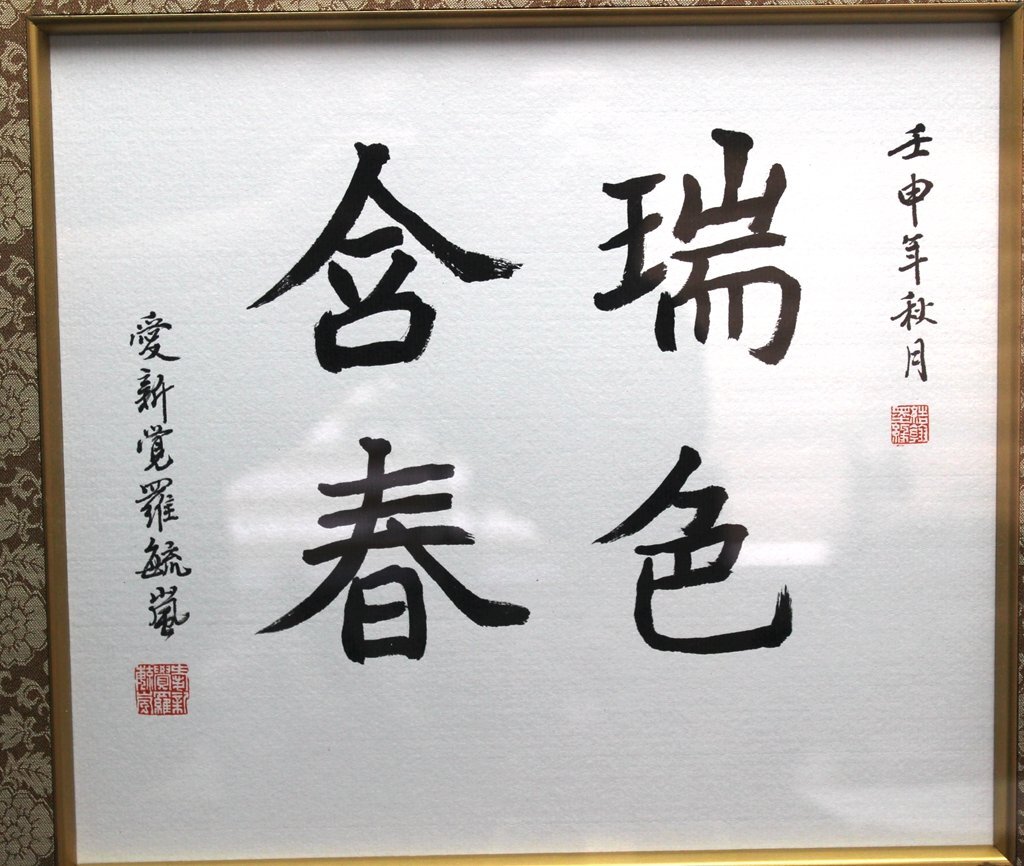 壬申年秋月
瑞色
含春
愛新覚羅毓嵐